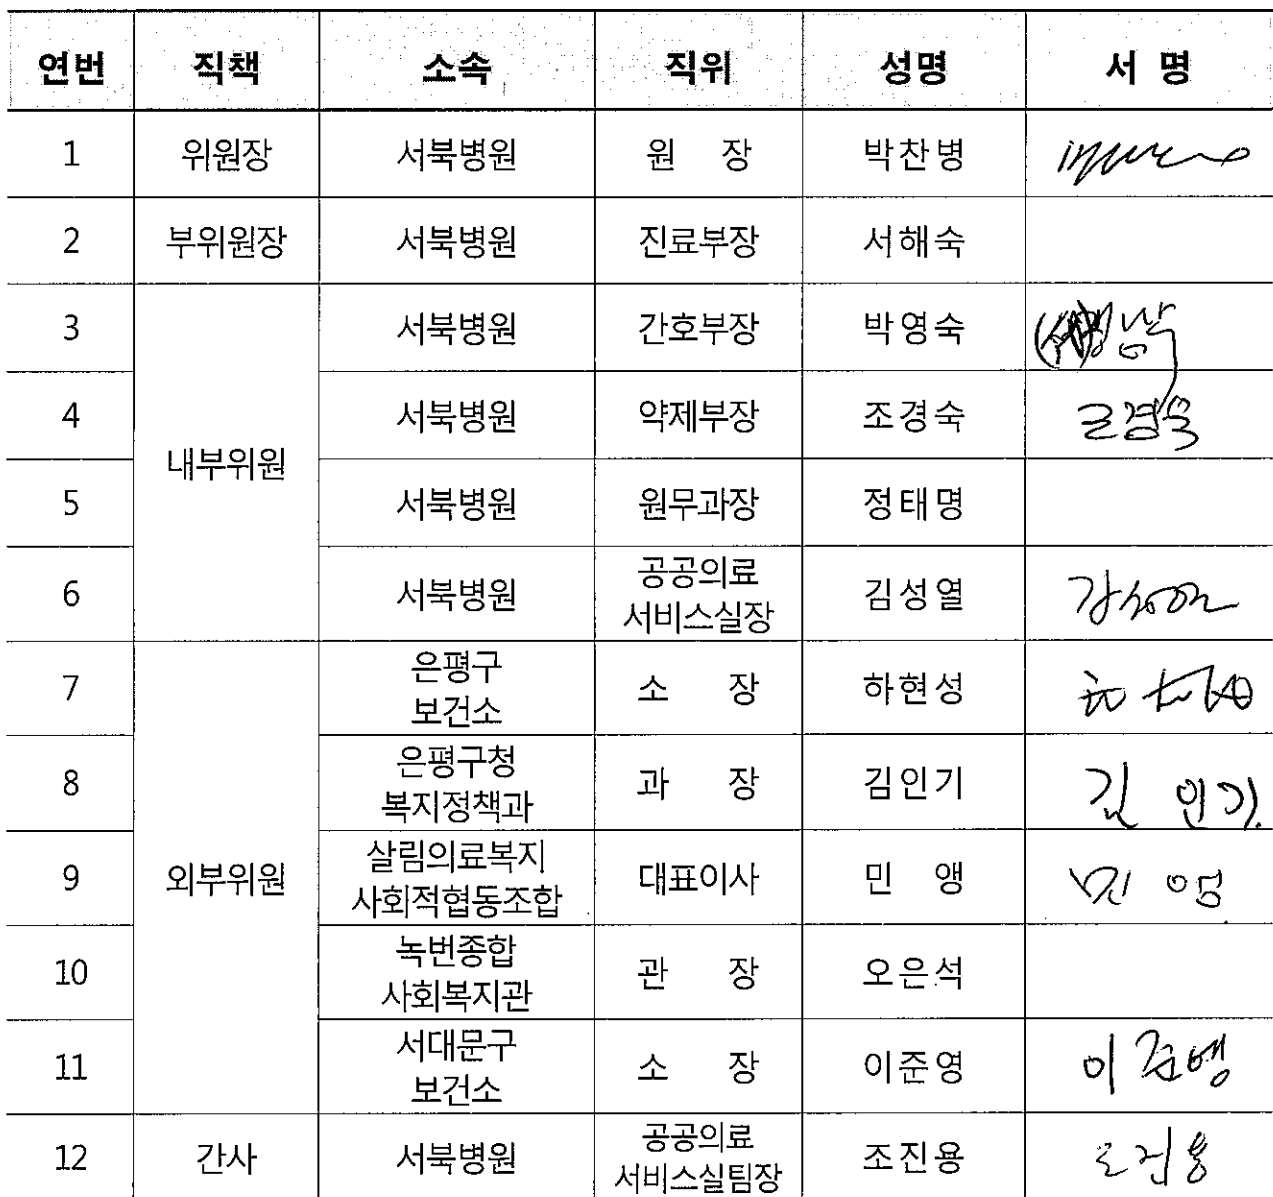 연번 직책 소속 직위 성명 서 명
1 위원장 서북병원 원 장 박찬병
2 부위원장 서북병원 진료부장 서해숙
3 서북병원 간호부장 박영숙
4 서북병원 약제부장 조경숙
내부위원
5 서북병원 원무과장 정태명
6 서북병원 공공의료
서비스실장 김성열
7 은평구
보건소 소 장 하현성
8 은평구청
복지정책과 과 장 김인기 김 인기
9 외부위원 살림의료복지
사회적협동조합 대표이사 민 앵
10 녹번종합
사회복지관 관 장 오은석
11 서대문구
보건소 소 장 이준영
12 간사 서북병원 공공의료
서비스실팀장 조진용